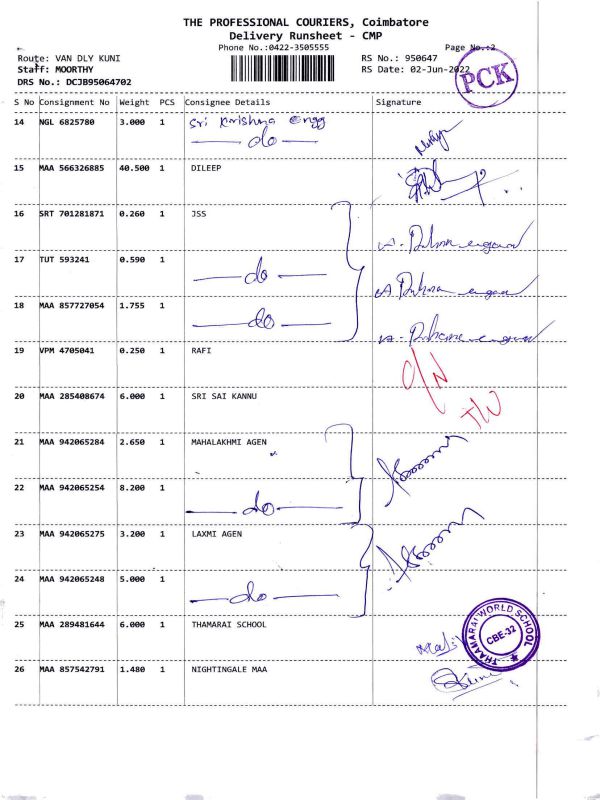 THE PROFESSIONAL COURIERS, Coimbatore
Delivery Runsheet - CMP
Phone No.:0422-3505555
Page No.:2
Route: VAN DLY KUNI
RS No.: 950647
Staff: MOORTHY
RS Date: 02-Jun-2022
DRS No.: DCJB95064702
PCK
S No Consignment No Weight PCS Consignee Details Signature
14 NGL 6825780 3.000 1 Sri Krishna Engg
do
15 MAA 566326885 40.500 1 DILEEP
16 SRT 701281871 0.260 1 JSS
17 TUT 593241 0.590 1 do
18 MAA 857727054 1.755 1 do
19 VPM 4705041 0.250 1 RAFI
20 MAA 285408674 6.000 1 SRI SAI KANNU
21 MAA 942065284 2.650 1 MAHALAKHMI AGEN
22 MAA 942065254 8.200 1 do
23 MAA 942065275 3.200 1 LAXMI AGEN
24 MAA 942065248 5.000 1 do
25 MAA 289481644 6.000 1 THAMARAI SCHOOL
THAAMARAI WORLD SCHOOL
CBE-32
26 MAA 857542791 1.480 1 NIGHTINGALE MAA